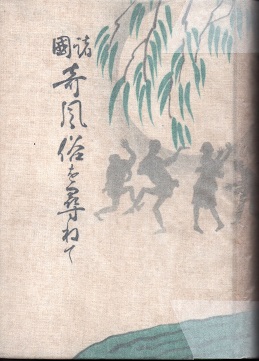 諸國
奇風俗を尋ねて